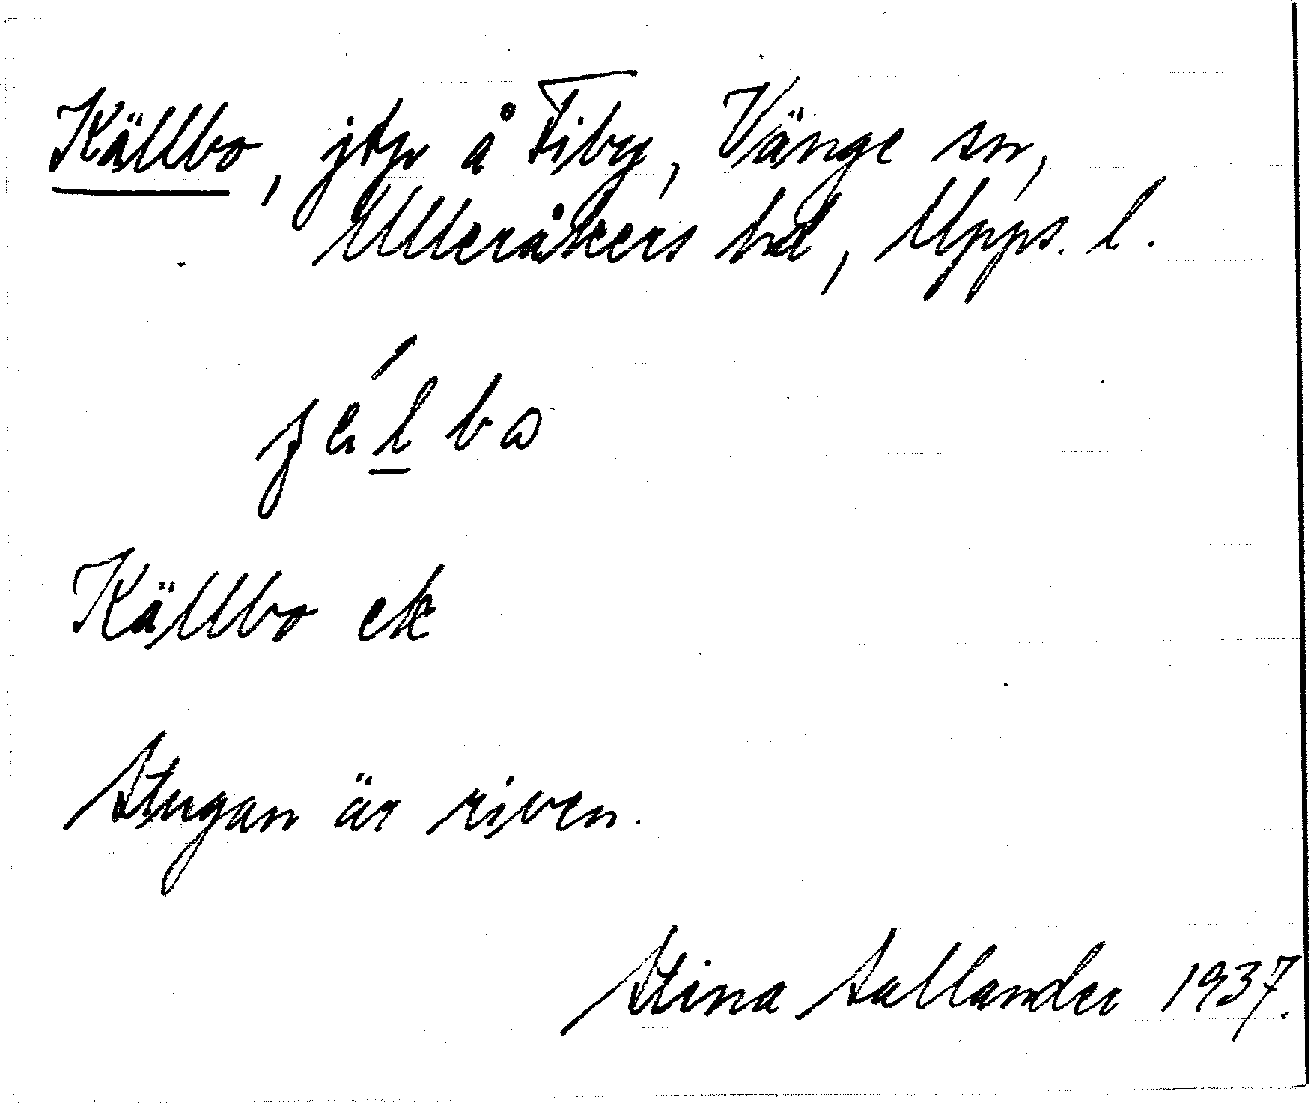 Källbo, jtp å Fiby, Vänge sn,
Ulleråkers hd, Upps. l.
Källbo ek
Stugan är riven.
Stina Sallander 1937.